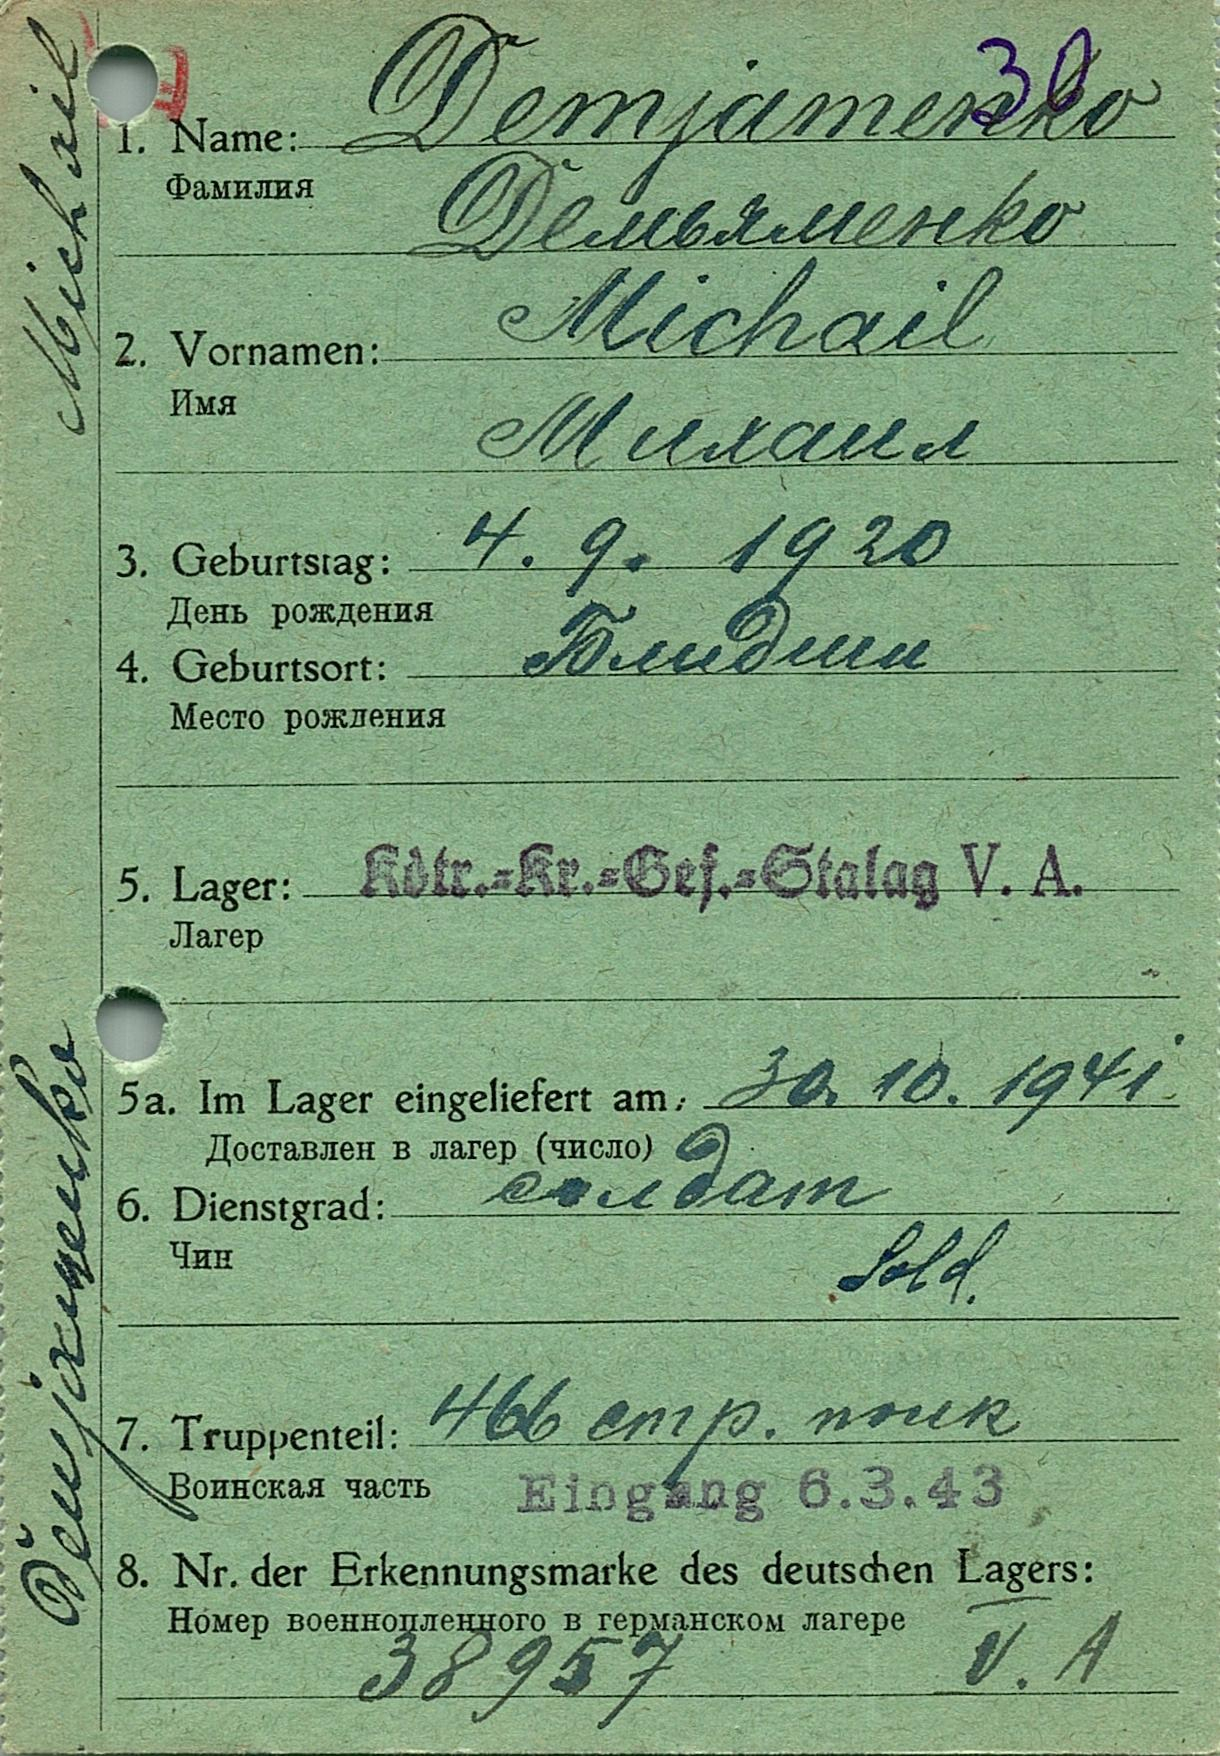 30
1. Name: Demjamenko
Фамилия
Демьяменко
2. Vornamen: Michail
Имя
Михаил
3. Geburtstag: 4. 9. 1920
День рождения
4. Geburtsort:
Место рождения
5. Lager: Kdtr.=Kr.=Gef.=Stalag V. A.
Лагер
5a. Im Lager eingeliefert am: 30. 10. 1941
Доставлен в лагер (число)
6. Dienstgrad: солдат
Чин
Sold.
7. Truppenteil: 466 стр. полк
Воинская часть
Eingang 6.3.43
8. Nr. der Erkennungsmarke des deutschen Lagers:
Номер военнопленного в германском лагере
38957 V. A
Michail